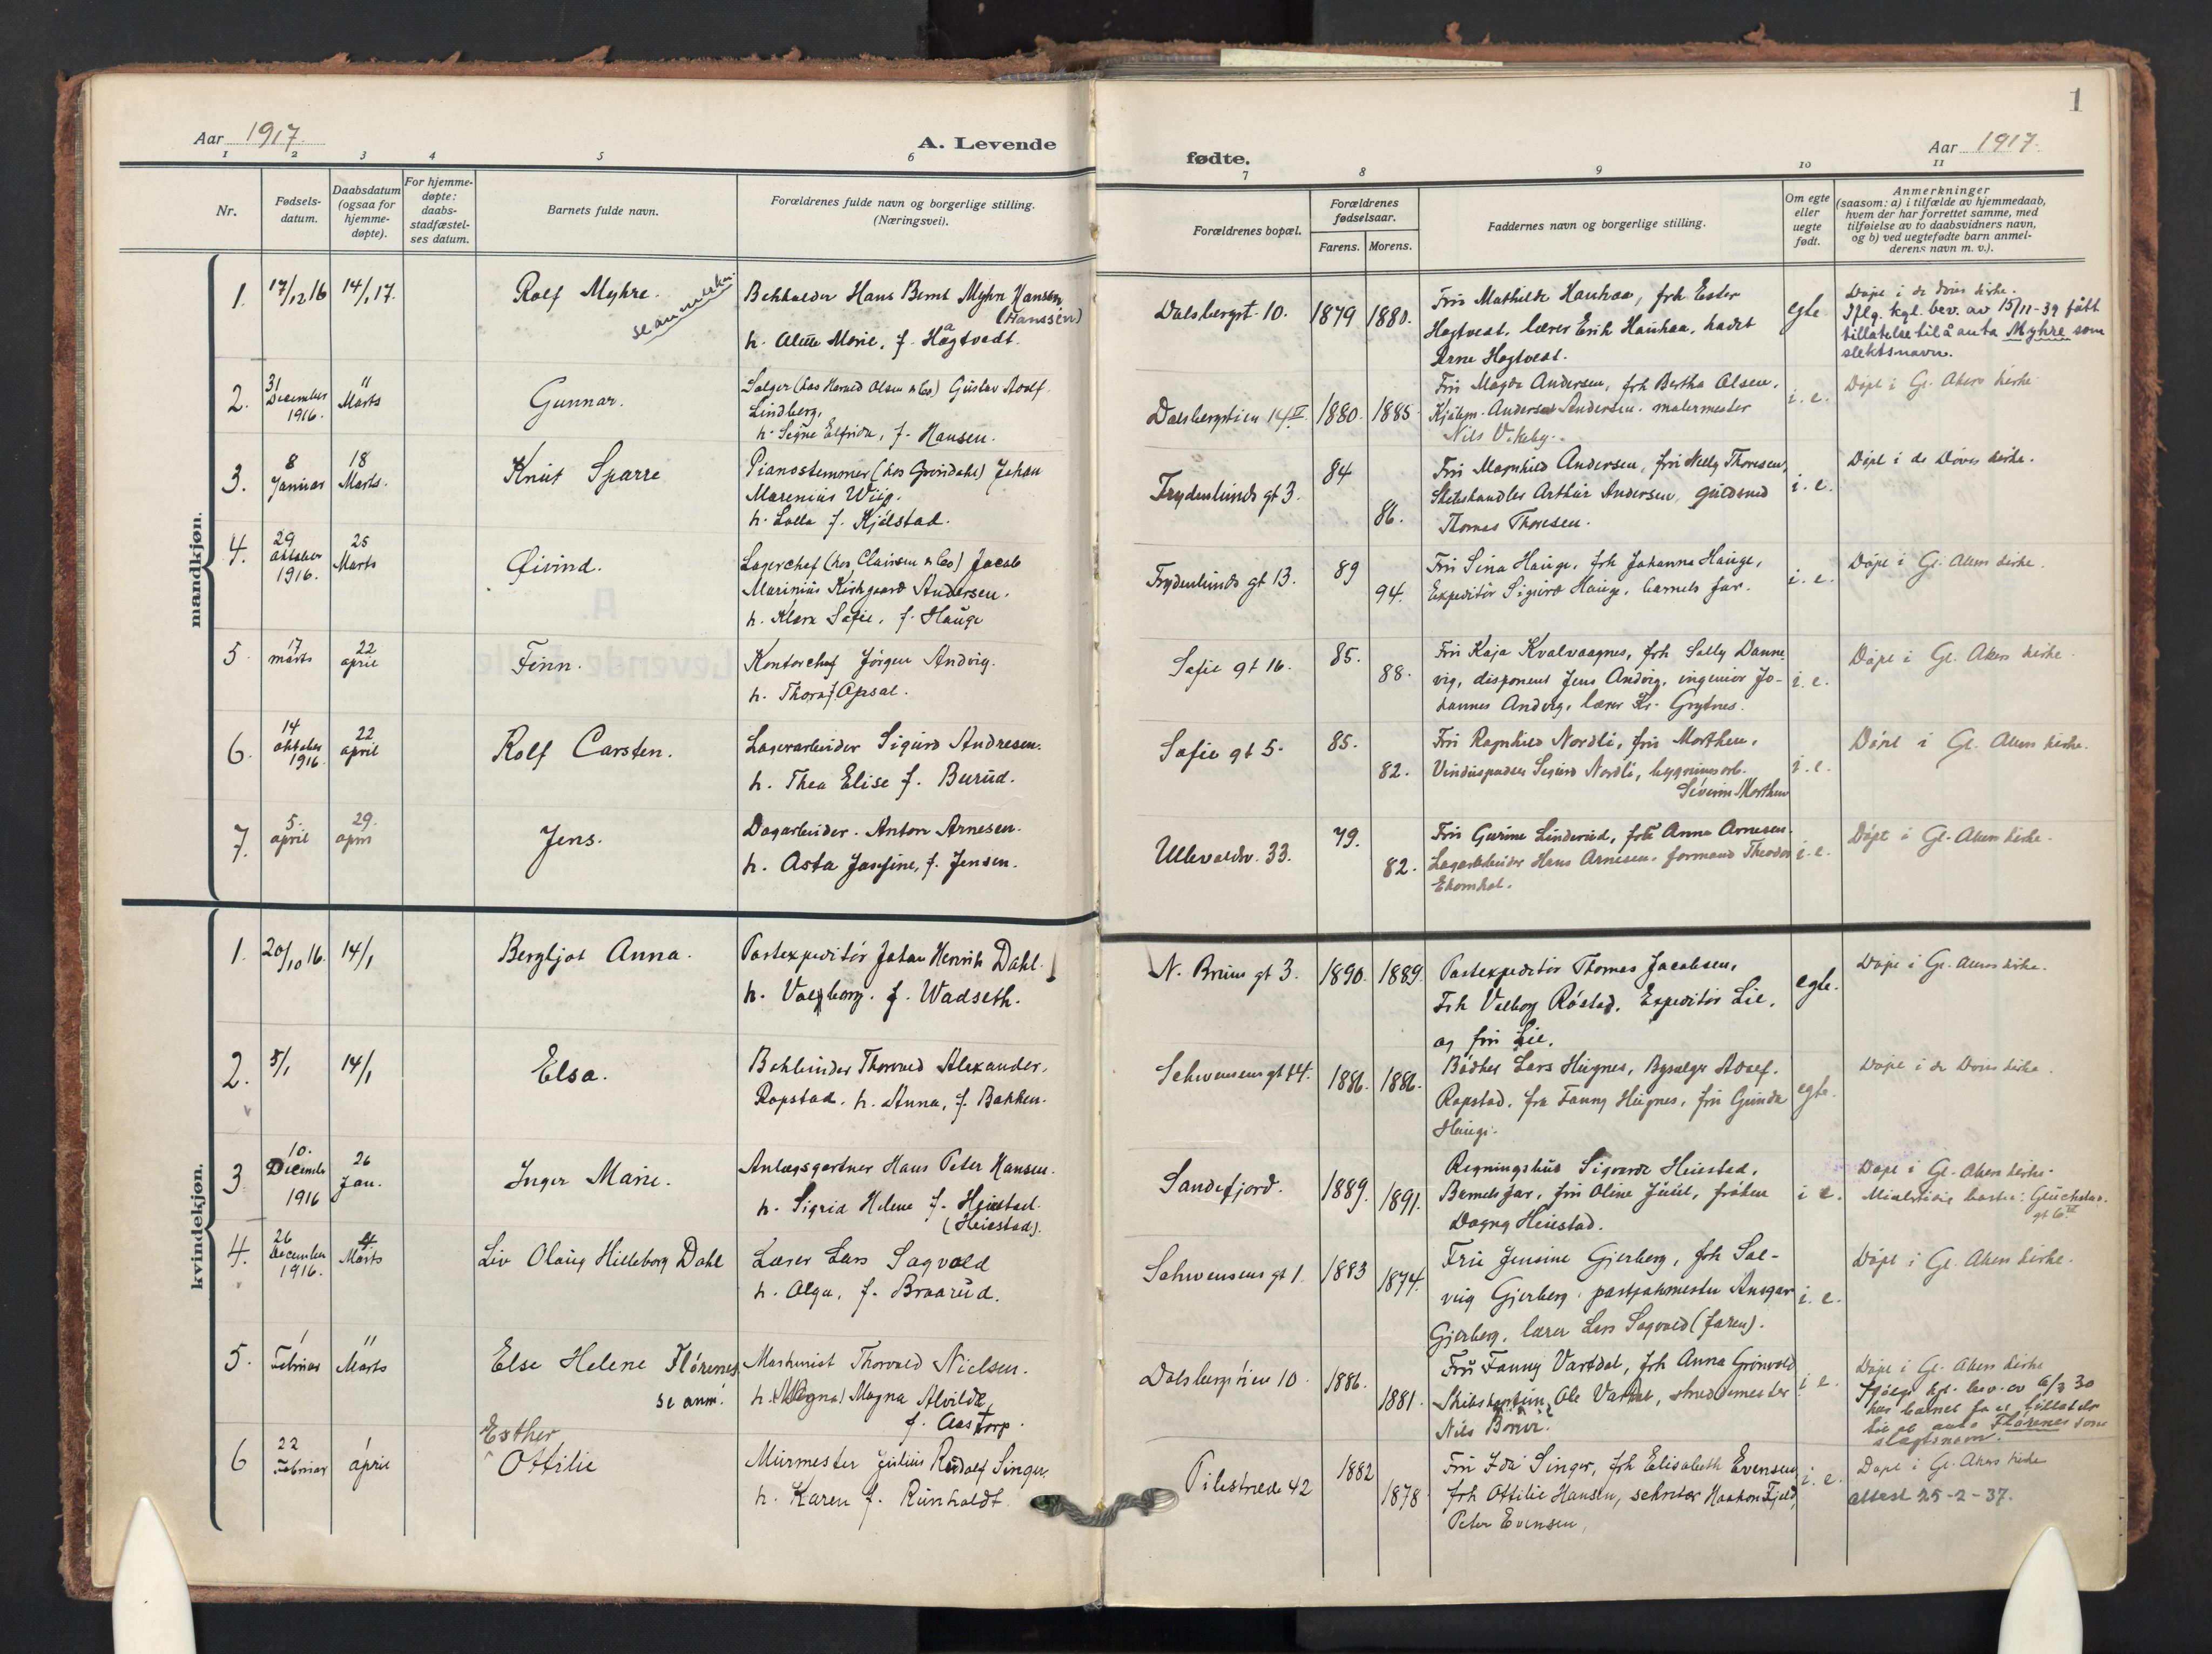 1
Aar 1917.
A. Levende
fødte.
Aar 1917.
1 2 3 4 5 6 7 8 9 10 11
Nr.
Fødsels-
datum.
Daabsdatum
(ogsaa for
hjemme-
døpte).
For hjemme-
døpte:
daabs-
stadfæstel-
ses datum.
Barnets fulde navn.
Forældrenes fulde navn og borgerlige stilling.
(Næringsvei).
Forældrenes bopæl.
Forældrenes
fødselsaar.
Farens. Morens.
Faddernes navn og borgerlige stilling.
Om egte
eller
uegte
født.
Anmerkninger
(saasom: a) i tilfælde av hjemmedaab,
hvem der har forrettet samme, med
tilføielse av to daabsvidners navn,
og b) ved uegtefødte barn anmel-
derens navn m. v.).
mandkjøn.
1. 17/12 16 14/1 17.
Rolf Myhre.
se anmerkn.
Hans Bernt Myhre Hansen
(Hanssen)
h. Marie, f. Hagtvedt.
Dalsbergst. 10. 1879 1880.
Fru Mathilde Hauhaa, frk Ester
Hagtvedt, lærer Erik Hauhaa, kadet
Arne Hagtvedt.
egte
Døpt i de Døves kirke.
Iflg. kgl. bev. av 15/11-39 fått
tillatelse til å anta Myhre som
slektsnavn.
2. 31 December 1916. 11 Marts
Gunnar.
Selger (hos Harald Olsen & Co) Gustav Adolf
Lindberg,
h. Signe Elfrida, f. Hansen.
Dalsbergstien 14 IV 1880. 1885
Fru Magda Andersen, frk Bertha Olsen,
Kjøbm. Anders Andersen. malermester
Nils Vikeby.
i. e.
Døpt i Gl. Akers kirke
3. 8 Januar 18 Marts.
Knut Sparre
Pianostemmer (hos Grøndahl) Johan
Marenius Wiig.
h. Lalla f. Kjølstad.
Frydenlunds gt 3. 84 86.
Fru Magnhild Andersen, fru Nelly Thoresen,
Arthur Andersen, guldsmed
Thomas Thoresen.
i. e.
Døpt i de Døves kirke.
4. 29 oktober 1916. 25 Marts
Øivind.
Lagerchef (hos Clausen & Co) Jacob
Marinius Kirkgaard Andersen.
h. Klara Sofie, f. Hauge
Frydenlunds gt 13. 89 94.
Fru Sina Hauge, frk Johanna Hauge,
Expeditør Sigurd Hauge, barnets far.
i. e.
Døpt i Gl. Akers kirke.
5. 17 marts 22 april
Finn.
Kontorchef Jørgen Andvig.
h. Thora f. Opsal.
Sofie gt 16. 85. 88.
Fru Kaja Kvalvaagnes, frk Sally Danne-
vig, disponent Jens Andvig, ingeniør Jo-
hannes Andvig, lærer Kr. Grytnes.
i. e.
Døpt i Gl. Akers kirke
6. 14 oktober 1916. 22 april
Rolf Carsten.
Lagerarbeider Sigurd Andresen.
h. Thea Elise f. Burud.
Sofie gt 5. 85. 82.
Fru Ragnhild Nordli, fru Morthen,
Vinduspudser Sigurd Nordli, bygningsarb.
Severin Morthen
i. e.
Døpt i Gl. Akers kirke.
7. 5. april 29. april
Jens.
Dagarbeider. Anton Arnesen.
h. Asta Josefine, f. Jensen.
Ullevoldsv. 33. 79. 82.
Fru Gurine Linderud, frk Anna Arnesen.
Lagerarbeider Hans Arnesen. formand Theodor
Ekornhol.
i. e.
Døpt i Gl. Akers kirke.
kvindekjøn.
1. 20/10 16. 14/1
Bergljot Anna.
Postexpeditør Johan Henrik Dahl.
h. Valborg. f. Wadseth.
N. Bruns gt 3. 1890. 1889.
Postexpeditør Thomas Jacobsen,
Frk Valborg Røstad. Expeditør Lie,
og fru Lie.
egte.
Døpt i Gl. Akers kirke.
2. 5/1 14/1
Elsa.
Bokbinder Thorvald Alexander.
Ropstad. h. Anna, f. Bakken.
Schwensens gt 14. 1886. 1886.
Bødker Lars Hegnes, Adolf
Ropstad. fru Fanny Hegnes, fru Gunda
Hauge.
egte.
Døpt i de Døves kirke.
3 10. December 1916 26 Jan.
Inger Marie.
Anlægsgartner Hans Peter Hansen.
h. Sigrid Helene f. Heiestad.
(Heiestad).
Sandefjord. 1889. 1891.
Sigvarda Heiestad,
Barnets far, fru Oline Juul, frøken
Dagny Heiestad.
i e.
Døpt i Gl. Akers kirke.
4. 26 December 1916. 4 Marts
Liv Olaug Hilleborg Dahl
Lærer Lars Sagvold
h. Olga, f. Braarud.
Schwensens gt 1. 1883 1874.
Fru Jensine Gjerberg, frk Sol-
veig Gjerberg, Ansgar
Gjerberg, lærer Lars Sagvold (faren).
i. e.
Døpt i Gl. Akers kirke.
5. 1 Februar 11 Marts
Else Helene Flörenes
se anm.
Maskinist Thorvald Nielsen.
h. Magna Alvilde,
f. Aastorp.
Dalsbergstien 10. 1886. 1881.
Fru Fanny Vartdal, frk Anna Grönvold
Ole Vartdal, smedemester
Nils
i e.
Døpt i Gl. Akers kirke
Ifølge kgl. bev. av 6/3 30
har barnet faat tillatelse
til at anta Flörenes som
slagtsnavn.
6 22 Februar 1 april
Esther
Ottilie
Murmester Julius Rudolf Singer.
h. Karen f. Runholdt.
Pilestræde 42 1882 1878
Fru Ida Singer, frk Elisabeth Evensen,
frk Ottilie Hansen, sekretær Haakon Fjeld,
Peter Evensen,
i. e.
Døpt i Gl. Akers kirke
attest 25-2-37.